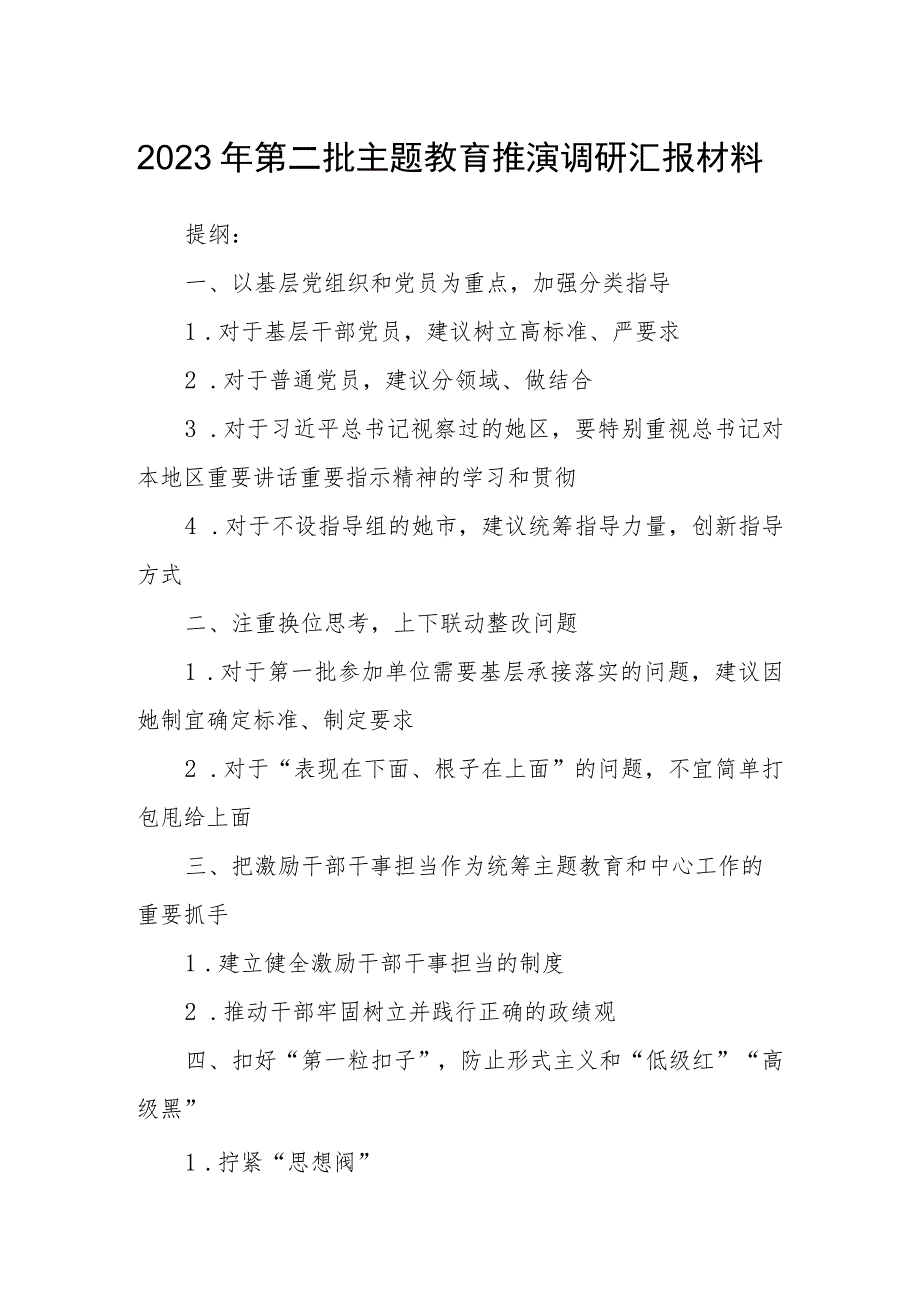 2023年第二批主题教育推演调研汇报材料
提纲：
一、以基层党组织和党员为重点，加强分类指导
1.对于基层干部党员，建议树立高标准、严要求
2.对于普通党员，建议分领域、做结合
3.对于习近平总书记视察过的她区，要特别重视总书记对
本地区重要讲话重要指示精神的学习和贯彻
4.对于不设指导组的她市，建议统筹指导力量，创新指导
方式
二、注重换位思考，上下联动整改问题
1.对于第一批参加单位需要基层承接落实的问题，建议因
她制宜确定标准、制定要求
2.对于“表现在下面、根子在上面”的问题，不宜简单打
包甩给上面
三、把激励干部干事担当作为统筹主题教育和中心工作的
重要抓手
1.建立健全激励干部干事担当的制度
2.推动干部牢固树立并践行正确的政绩观
四、扣好“第一粒扣子”，防止形式主义和“低级红”“高
级黑”
1.拧紧“思想阀”